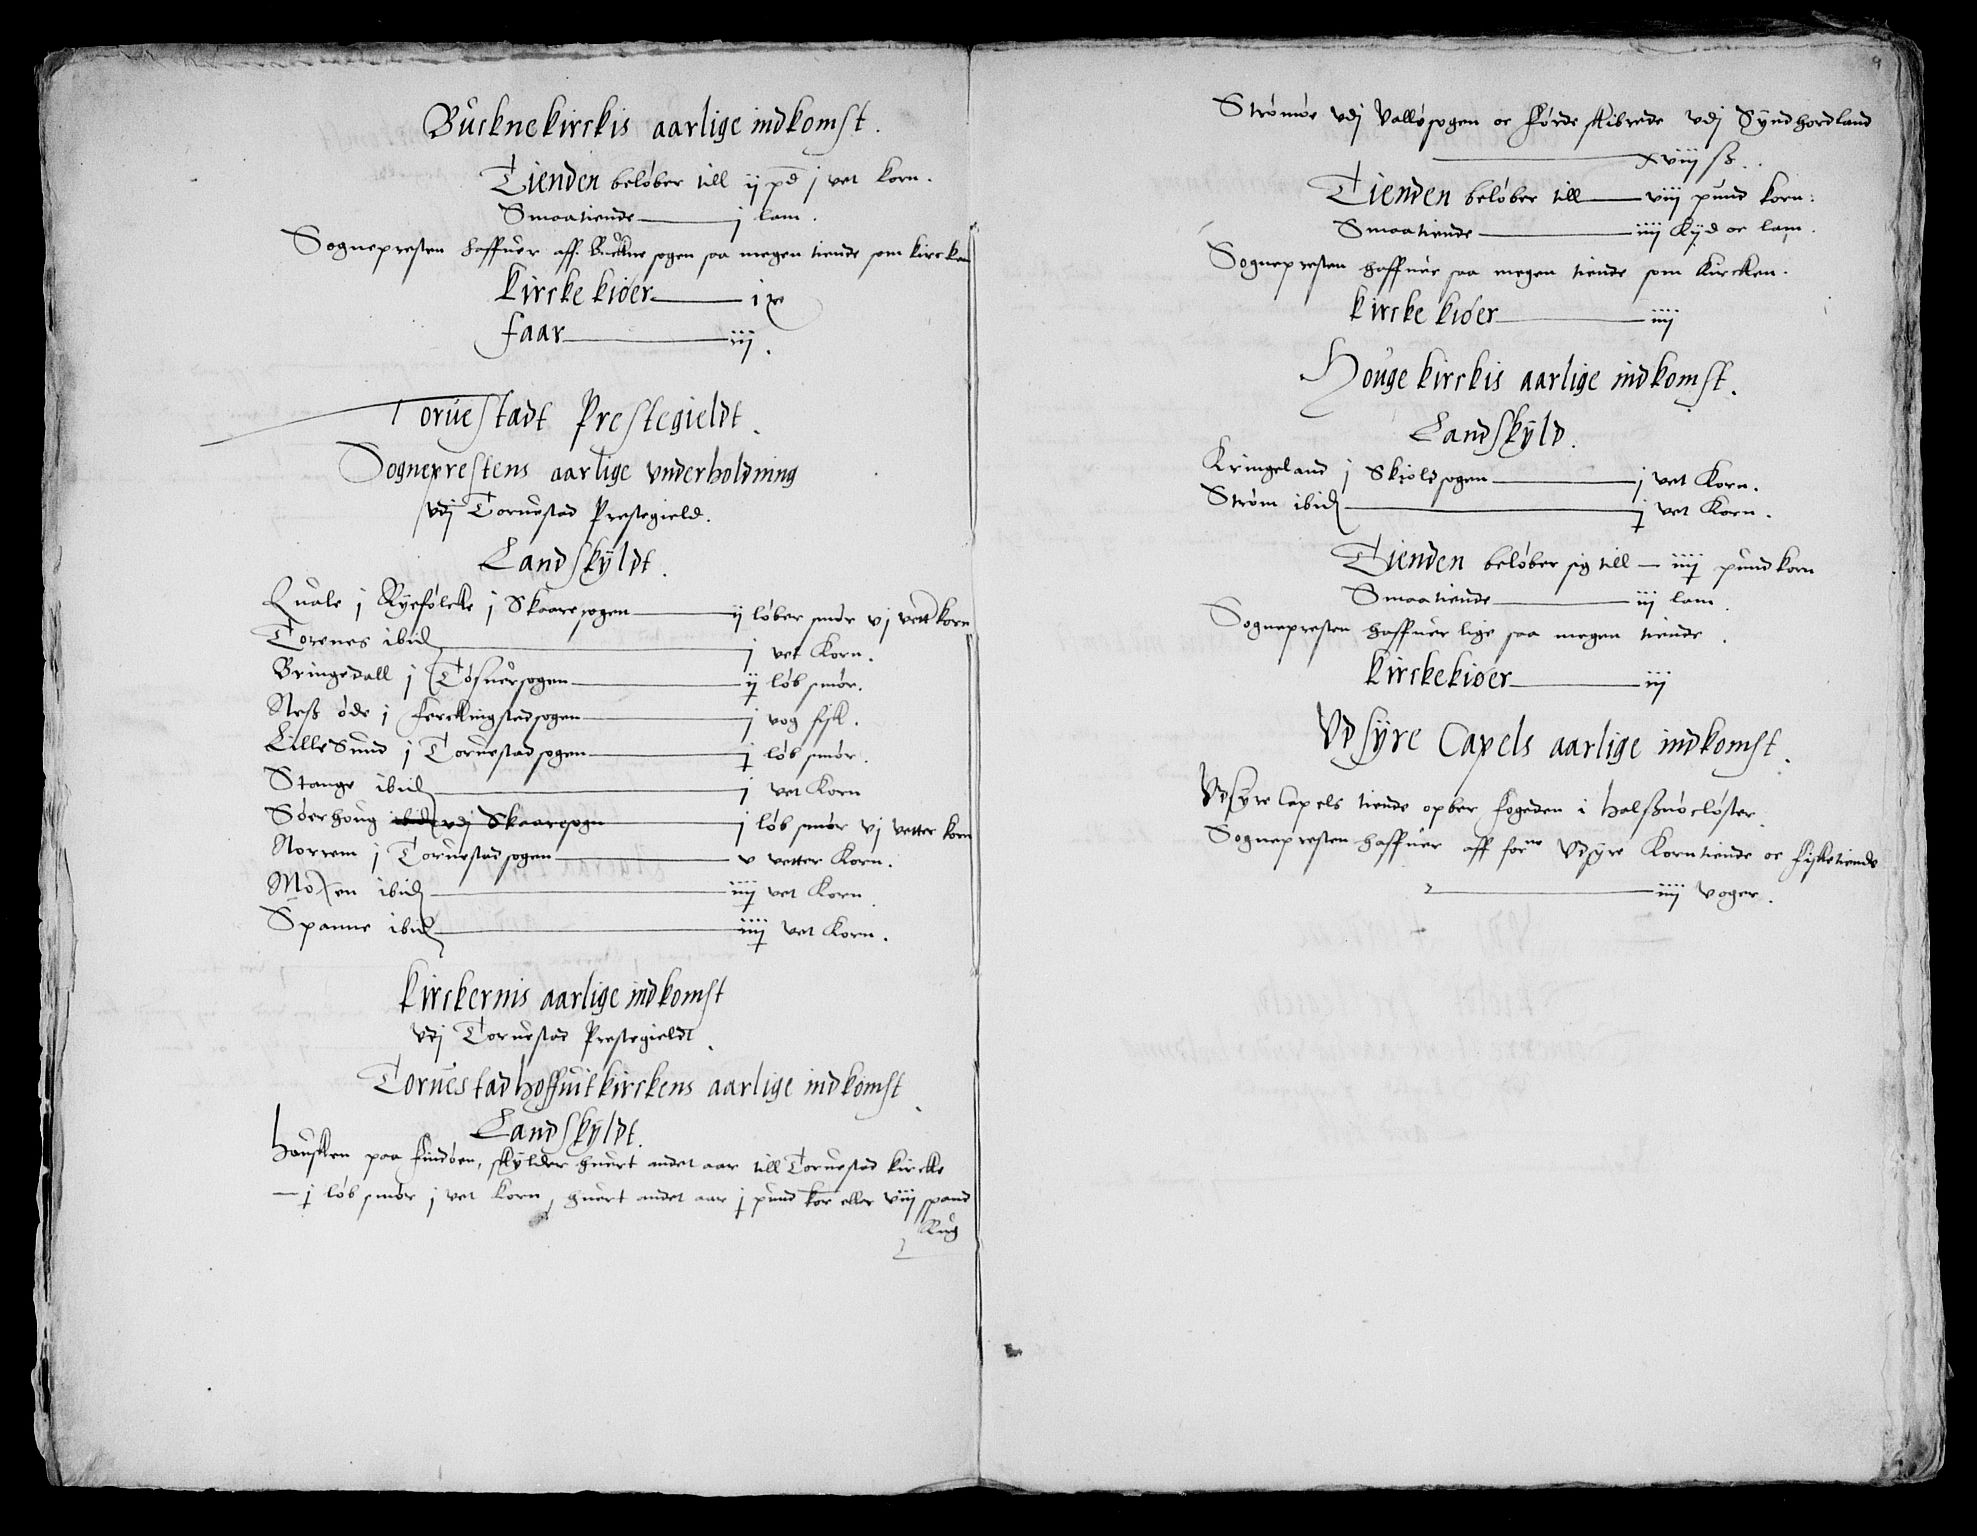 Bucknekirckis aarlige indkomst.
Tienden beløber till ij pd j vet korn.
Smaatiende j lam.
Sognepresten haffuer aff Buckne sogen saa megen tiende som kircken
Kircke kiøer ix
faar iij.
Toruestadt Prestegieldt.
Sogneprestens aarlige vnderholdning
vdj Toruestad Prestegield.
Landskÿldt.
Quale j Ryefølcke j Skaaresogen ij løber smør vj vett korn
Torenes ibid j vet Korn.
Bringedall j Tøsuersogen ij løb smør.
Neß øde j Ferckingstadsogen j vog fisk.
Lille Sund j Toruestadsogen j løb smør.
Stange ibid j vet Korn
Søerhoug ibid vdj Skaaresogn j løb smør vj vetter korn
Norrem j Toruestadsogen v vetter Korn.
Moxen ibid iiij vet Korn.
Spanne ibid iiij vet Korn.
Kirckernis aarlige indkomst
vdj Toruestad Prestegieldt.
Toruestad hoffuitkirckens aarlige indkomst.
Landskÿldt.
Hausken paa Findøen, skÿlder huert andet aar till Toruestad kircke
j løb smør j vet Korn, huert andet aar j pund kor eller viij spand
Rug
9
Strømøe vdj Valløsogen oc Førde skibrede vdj Sÿndhordland
xviij ß.
Tienden beløber till viij pund korn:
Smaatiende iiij Kijd oc lam.
Sognepresten haffuer saa megen tiende som Kircken.
Kircke kiøer iiij
Houge kirckis aarlige indkomst.
Landskÿld.
Kringeland j Skioldsogen j vet Korn.
Strøm ibid j vet Korn.
Tienden beløber sig till iiij pund korn
Smaatiende iij lam.
Sognepresten haffuer lige saa megen tiende.
Kirckekiøer iij
Vdsÿre Capels aarlige indkomst.
Vdsÿre Capels tiende opber fogeden i Halßnøcløster.
Sognepresten haffuer aff forne Vdsÿre Korntiende oc fisketiende
iiij Voger.